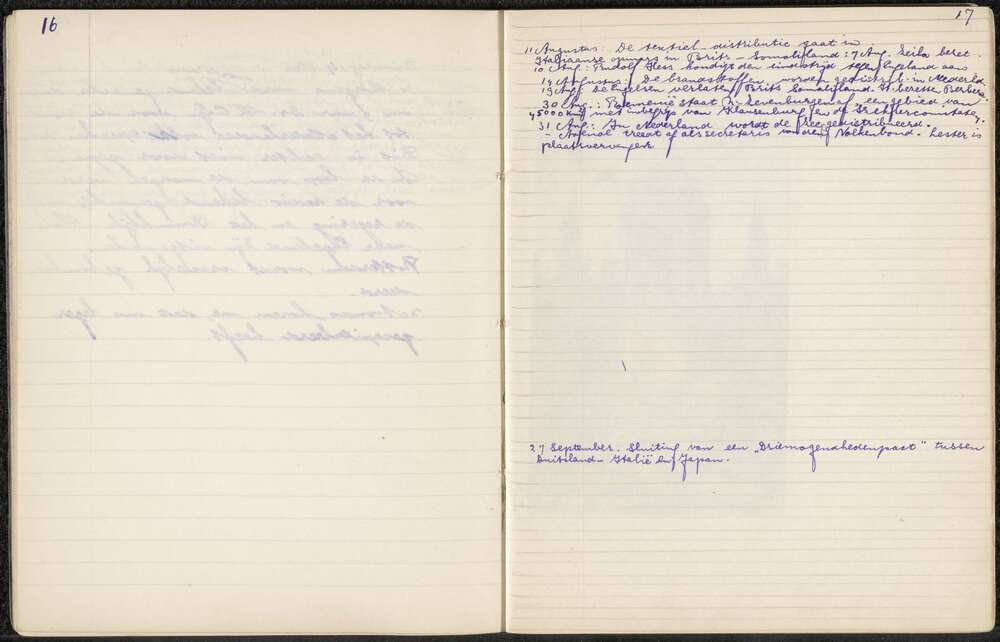 16
17
11 Augustus: De textiel-distributie gaat in
Italiaanse opmars in Brits-Somaliland: 7 Aug. Zeila bezet.
10 Aug.: Rudolf Hess kondigt den eindstrijd tegen Engeland aan
14 Augustus: De brandstoffen worden gedistrib. in Nederld.
19 Aug. De Engelsen verlaten Brits Somaliland. Berbera.
30 Aug.: Roemenië staat Zevenburgen af, een gebied van
45000 km² met inbegrip van Klausenburg en de
31 Aug.: In Nederland wordt de thee gedistribueerd.
- Avenol treedt af als secretaris van den Volkenbond. Lester is
plaatsvervanger
27 September. Sluiting van een „Driemogendhedenpact" tussen
Duitsland - Italië en Japan.